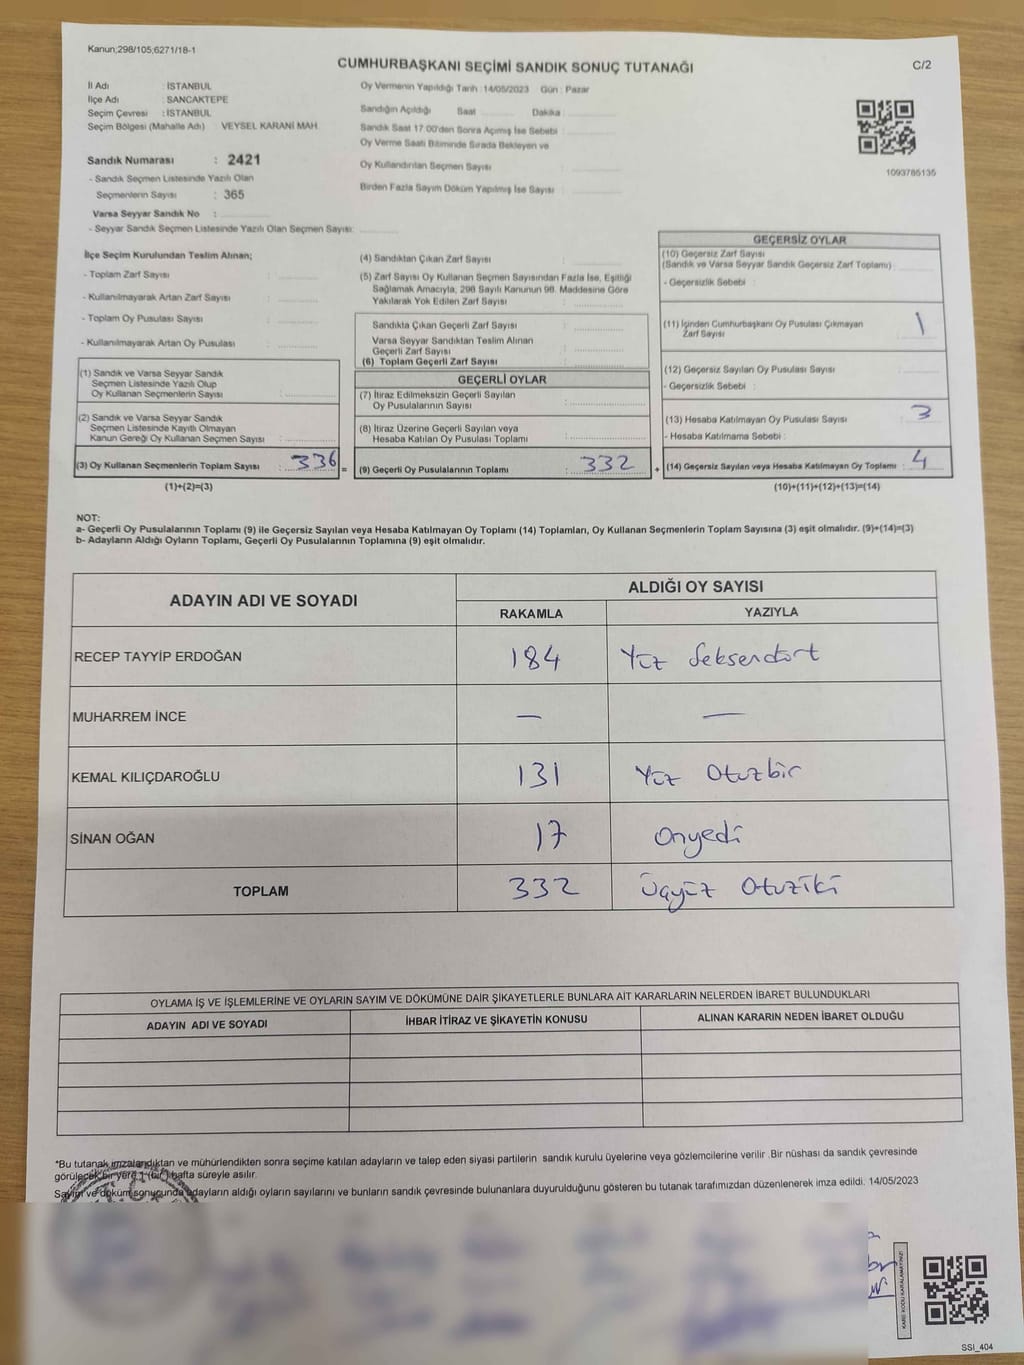 Kanun;298/105;6271/18-1
CUMHURBAŞKANI SEÇİMİ SANDIK SONUÇ TUTANAĞI
C/2
İl Adı : İSTANBUL
İlçe Adı : SANCAKTEPE
Seçim Çevresi : İSTANBUL
Seçim Bölgesi (Mahalle Adı) VEYSEL KARANİ MAH.
Sandık Numarası : 2421
- Sandık Seçmen Listesinde Yazılı Olan
Seçmenlerin Sayısı : 365
Varsa Seyyar Sandık No :
- Seyyar Sandık Seçmen Listesinde Yazılı Olan Seçmen Sayısı:
Oy Vermenin Yapıldığı Tarih :14/05/2023 Gün : Pazar
Sandığın Açıldığı Saat Dakika :
Sandık Saat 17.00'den Sonra Açılmış İse Sebebi :
Oy Verme Saati Bitiminde Sırada Bekleyen ve
Oy Kullandırılan Seçmen Sayısı :
Birden Fazla Sayım Döküm Yapılmış İse Sayısı :
1093785135
İlçe Seçim Kurulundan Teslim Alınan;
- Toplam Zarf Sayısı :
- Kullanılmayarak Artan Zarf Sayısı :
- Toplam Oy Pusulası Sayısı :
- Kullanılmayarak Artan Oy Pusulası :
(1) Sandık ve Varsa Seyyar Sandık
Seçmen Listesinde Yazılı Olup
Oy Kullanan Seçmenlerin Sayısı :
(2) Sandık ve Varsa Seyyar Sandık
Seçmen Listesinde Kayıtlı Olmayan
Kanun Gereği Oy Kullanan Seçmen Sayısı :
(3) Oy Kullanan Seçmenlerin Toplam Sayısı : 336 =
(1)+(2)=(3)
(4) Sandıktan Çıkan Zarf Sayısı :
(5) Zarf Sayısı Oy Kullanan Seçmen Sayısından Fazla İse, Eşitliği
Sağlamak Amacıyla, 298 Sayılı Kanunun 98. Maddesine Göre
Yakılarak Yok Edilen Zarf Sayısı :
Sandıkta Çıkan Geçerli Zarf Sayısı :
Varsa Seyyar Sandıktan Teslim Alınan
Geçerli Zarf Sayısı :
(6) Toplam Geçerli Zarf Sayısı :
GEÇERLİ OYLAR
(7) İtiraz Edilmeksizin Geçerli Sayılan
Oy Pusulalarının Sayısı :
(8) İtiraz Üzerine Geçerli Sayılan veya
Hesaba Katılan Oy Pusulası Toplamı :
(9) Geçerli Oy Pusulalarının Toplamı : 332 +
GEÇERSİZ OYLAR
(10) Geçersiz Zarf Sayısı
(Sandık ve Varsa Seyyar Sandık Geçersiz Zarf Toplamı)
- Geçersizlik Sebebi :
(11) İçinden Cumhurbaşkanı Oy Pusulası Çıkmayan
Zarf Sayısı : 1
(12) Geçersiz Sayılan Oy Pusulası Sayısı :
- Geçersizlik Sebebi :
(13) Hesaba Katılmayan Oy Pusulası Sayısı : 3
- Hesaba Katılmama Sebebi :
(14) Geçersiz Sayılan veya Hesaba Katılmayan Oy Toplamı : 4
(10)+(11)+(12)+(13)=(14)
NOT:
a- Geçerli Oy Pusulalarının Toplamı (9) ile Geçersiz Sayılan veya Hesaba Katılmayan Oy Toplamı (14) Toplamları, Oy Kullanan Seçmenlerin Toplam Sayısına (3) eşit olmalıdır. (9)+(14)=(3)
b- Adayların Aldığı Oyların Toplamı, Geçerli Oy Pusulalarının Toplamına (9) eşit olmalıdır.
ADAYIN ADI VE SOYADI
ALDIĞI OY SAYISI
RAKAMLA YAZIYLA
RECEP TAYYİP ERDOĞAN 184 Yüz Seksendört
MUHARREM İNCE — —
KEMAL KILIÇDAROĞLU 131 Yüz Otuzbir
SİNAN OĞAN 17 Onyedi
TOPLAM 332 Üçyüz Otuziki
OYLAMA İŞ VE İŞLEMLERİNE VE OYLARIN SAYIM VE DÖKÜMÜNE DAİR ŞİKAYETLERLE BUNLARA AİT KARARLARIN NELERDEN İBARET BULUNDUKLARI
ADAYIN ADI VE SOYADI İHBAR İTİRAZ VE ŞİKAYETİN KONUSU ALINAN KARARIN NEDEN İBARET OLDUĞU
*Bu tutanak imzalandıktan ve mühürlendikten sonra seçime katılan adayların ve talep eden siyasi partilerin sandık kurulu üyelerine veya gözlemcilerine verilir .Bir nüshası da sandık çevresinde
görülecek bir yere 1 (bir) hafta süreyle asılır.
Sayım ve döküm sonucunda adayların aldığı oyların sayılarını ve bunların sandık çevresinde bulunanlara duyurulduğunu gösteren bu tutanak tarafımızdan düzenlenerek imza edildi. 14/05/2023
KARE KODU KARALAMAYINIZ!
SSİ_404